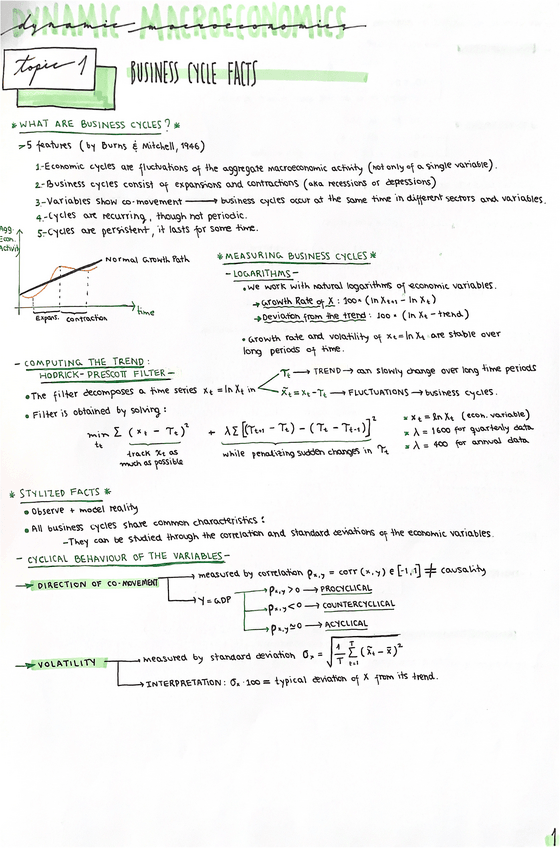 DYNAMIC MACROECONOMICS
dynamic macroeconomics
topic 1
BUSINESS CYCLE FACTS
* WHAT ARE BUSINESS CYCLES? *
> 5 features (by Burns & Mitchell, 1946)
1-Economic cycles are fluctuations of the aggregate macroeconomic activity (not only of a single variable).
2-Business cycles consist of expansions and contractions (aka recessions or depessions)
3-Variables show co-movement → business cycles occur at the same time in different sectors and variables.
4-Cycles are recurring, though not periodic.
5-Cycles are persistent, it lasts for some time.
Agg. Econ. Activity
Normal Growth Path
time
Expans. contraction
* MEASURING BUSINESS CYCLES *
- LOGARITHMS -
• We work with natural logarithms of economic variables.
→ Growth Rate of X : 100 · (ln Xt+1 - ln Xt)
→ Deviation from the trend : 100 · (ln Xt - trend)
• Growth rate and volatility of xt = ln Xt are stable over
long periods of time.
- COMPUTING THE TREND :
HODRICK-PRESCOTT FILTER -
τt → TREND → can slowly change over long time periods
• The filter decomposes a time series xt = ln Xt in
x̃t = xt - τt → FLUCTUATIONS → business cycles.
• Filter is obtained by solving:
min τt Σ (xt - τt)² + λΣ[(τt+1 - τt) - (τt - τt-1)]²
track xt as
much as possible
while penalizing sudden changes in τt
* xt = ln Xt (econ. variable)
* λ = 1600 for quarterly data
* λ = 400 for annual data
* STYLIZED FACTS *
• Observe + model reality
• All business cycles share common characteristics :
-They can be studied through the correlation and standard deviations of the economic variables.
- CYCLICAL BEHAVIOUR OF THE VARIABLES -
→ DIRECTION OF CO-MOVEMENT → measured by correlation ρx,y = corr (x,y) e [-1,1] ≠ causality
→ Y = GDP → ρx,y > 0 → PROCYCLICAL
→ ρx,y < 0 → COUNTERCYCLICAL
→ ρx,y ≃ 0 → ACYCLICAL
→ VOLATILITY → measured by standard deviation σx = √(1/T Σ t=1 T (x̃t - x̄)²)
→ INTERPRETATION : σx · 100 = typical deviation of X from its trend.
1